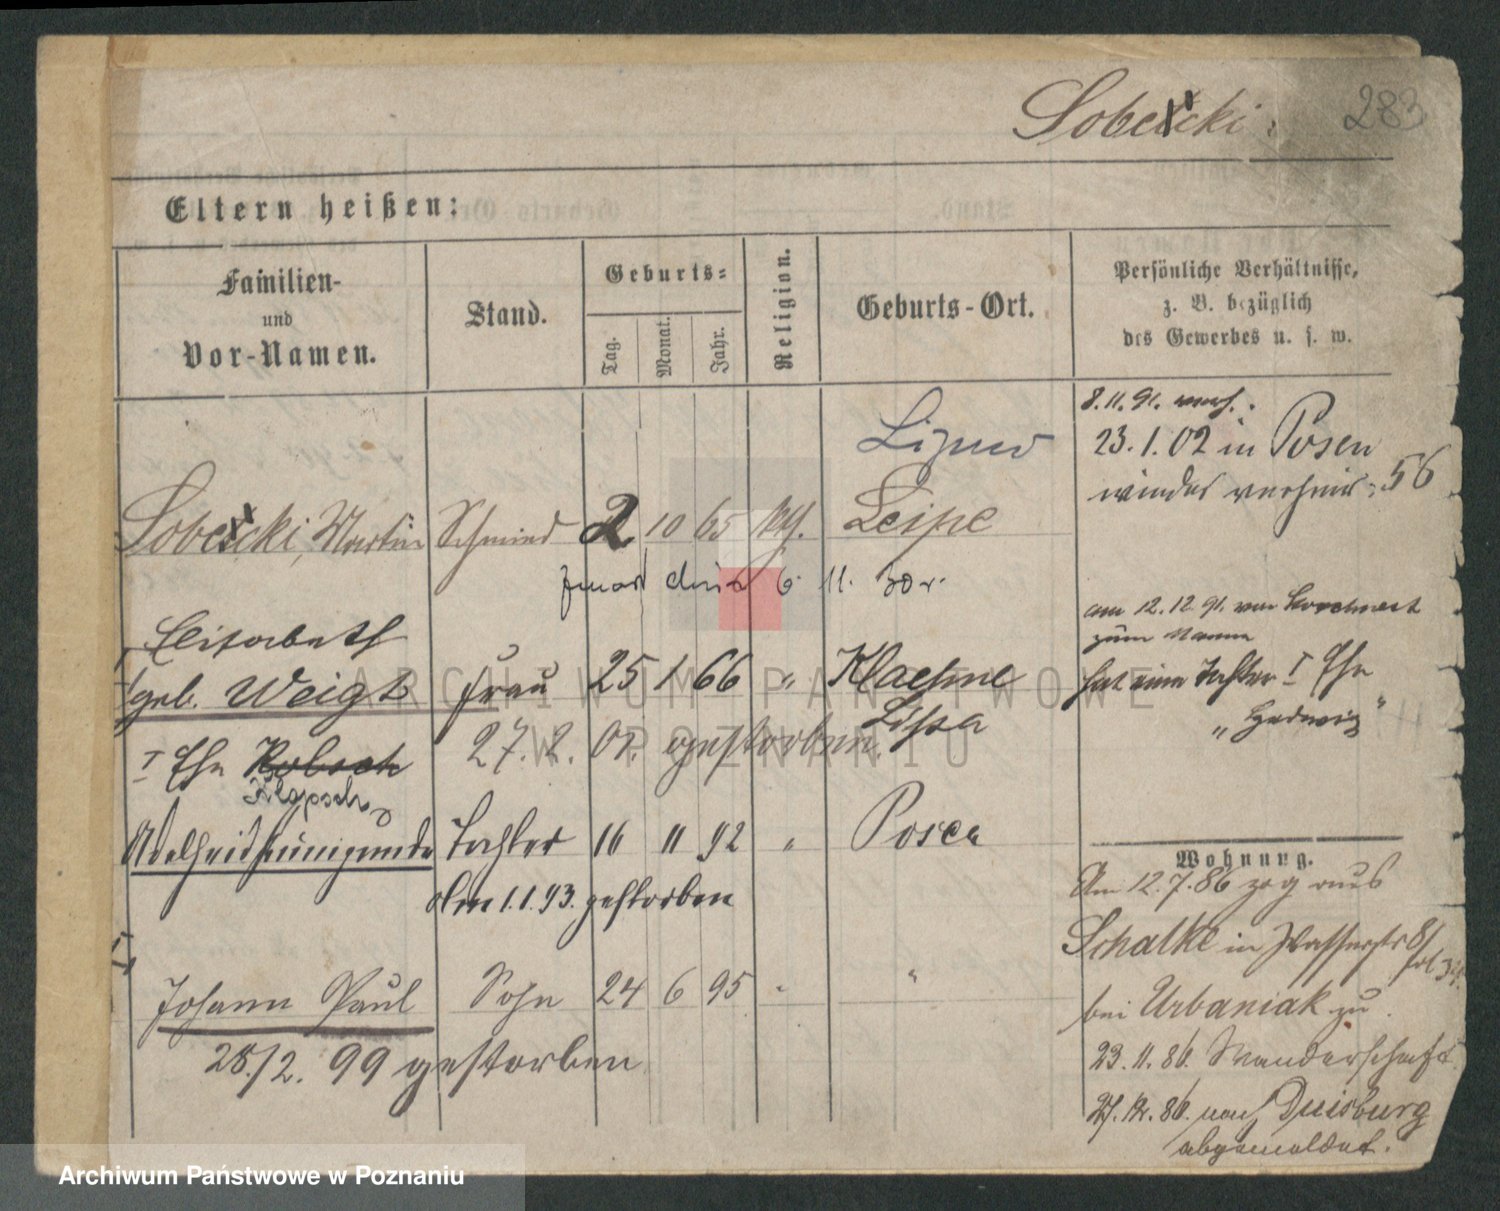 Sobecki.
283
Eltern heißen:
Familien-
und
Vor-Namen.
Stand.
Geburts-
Tag.
Monat.
Jahr.
Religion.
Geburts-Ort.
Persönliche Verhältnisse,
z. B. bezüglich
des Gewerbes u. s. w.
8.11.91. verh.
23.1.02 in Posen
wieder verheir. 56
Sobecki, Martin Schmied 2 10 65 kth. Leipe
6. 11.
Elisabeth
geb. Weigt Frau 25 1 66 " Klaehne
Lissa
am 12.12.91. von
zum Manne
hat eine Tochter I Ehe
"Hedwig"
I Ehe Kobsch
Klopsch
27.2. 01. gestorben
Adelheid Kunigunde Tochter 16 11 92 " Posen
Am 1.1.93. gestorben
Johann Paul Sohn 24 6 95 " "
28./2. 99 gestorben
Wohnung.
Am 12.7.86 zog aus
Schalke in Wasserstr 8/
bei Urbaniak zu.
23.11.86. Wanderschaft
27.12.86. nach Duisburg
abgemeldet.
ARCHIWUM PAŃSTWOWE
W POZNANIU
Archiwum Państwowe w Poznaniu